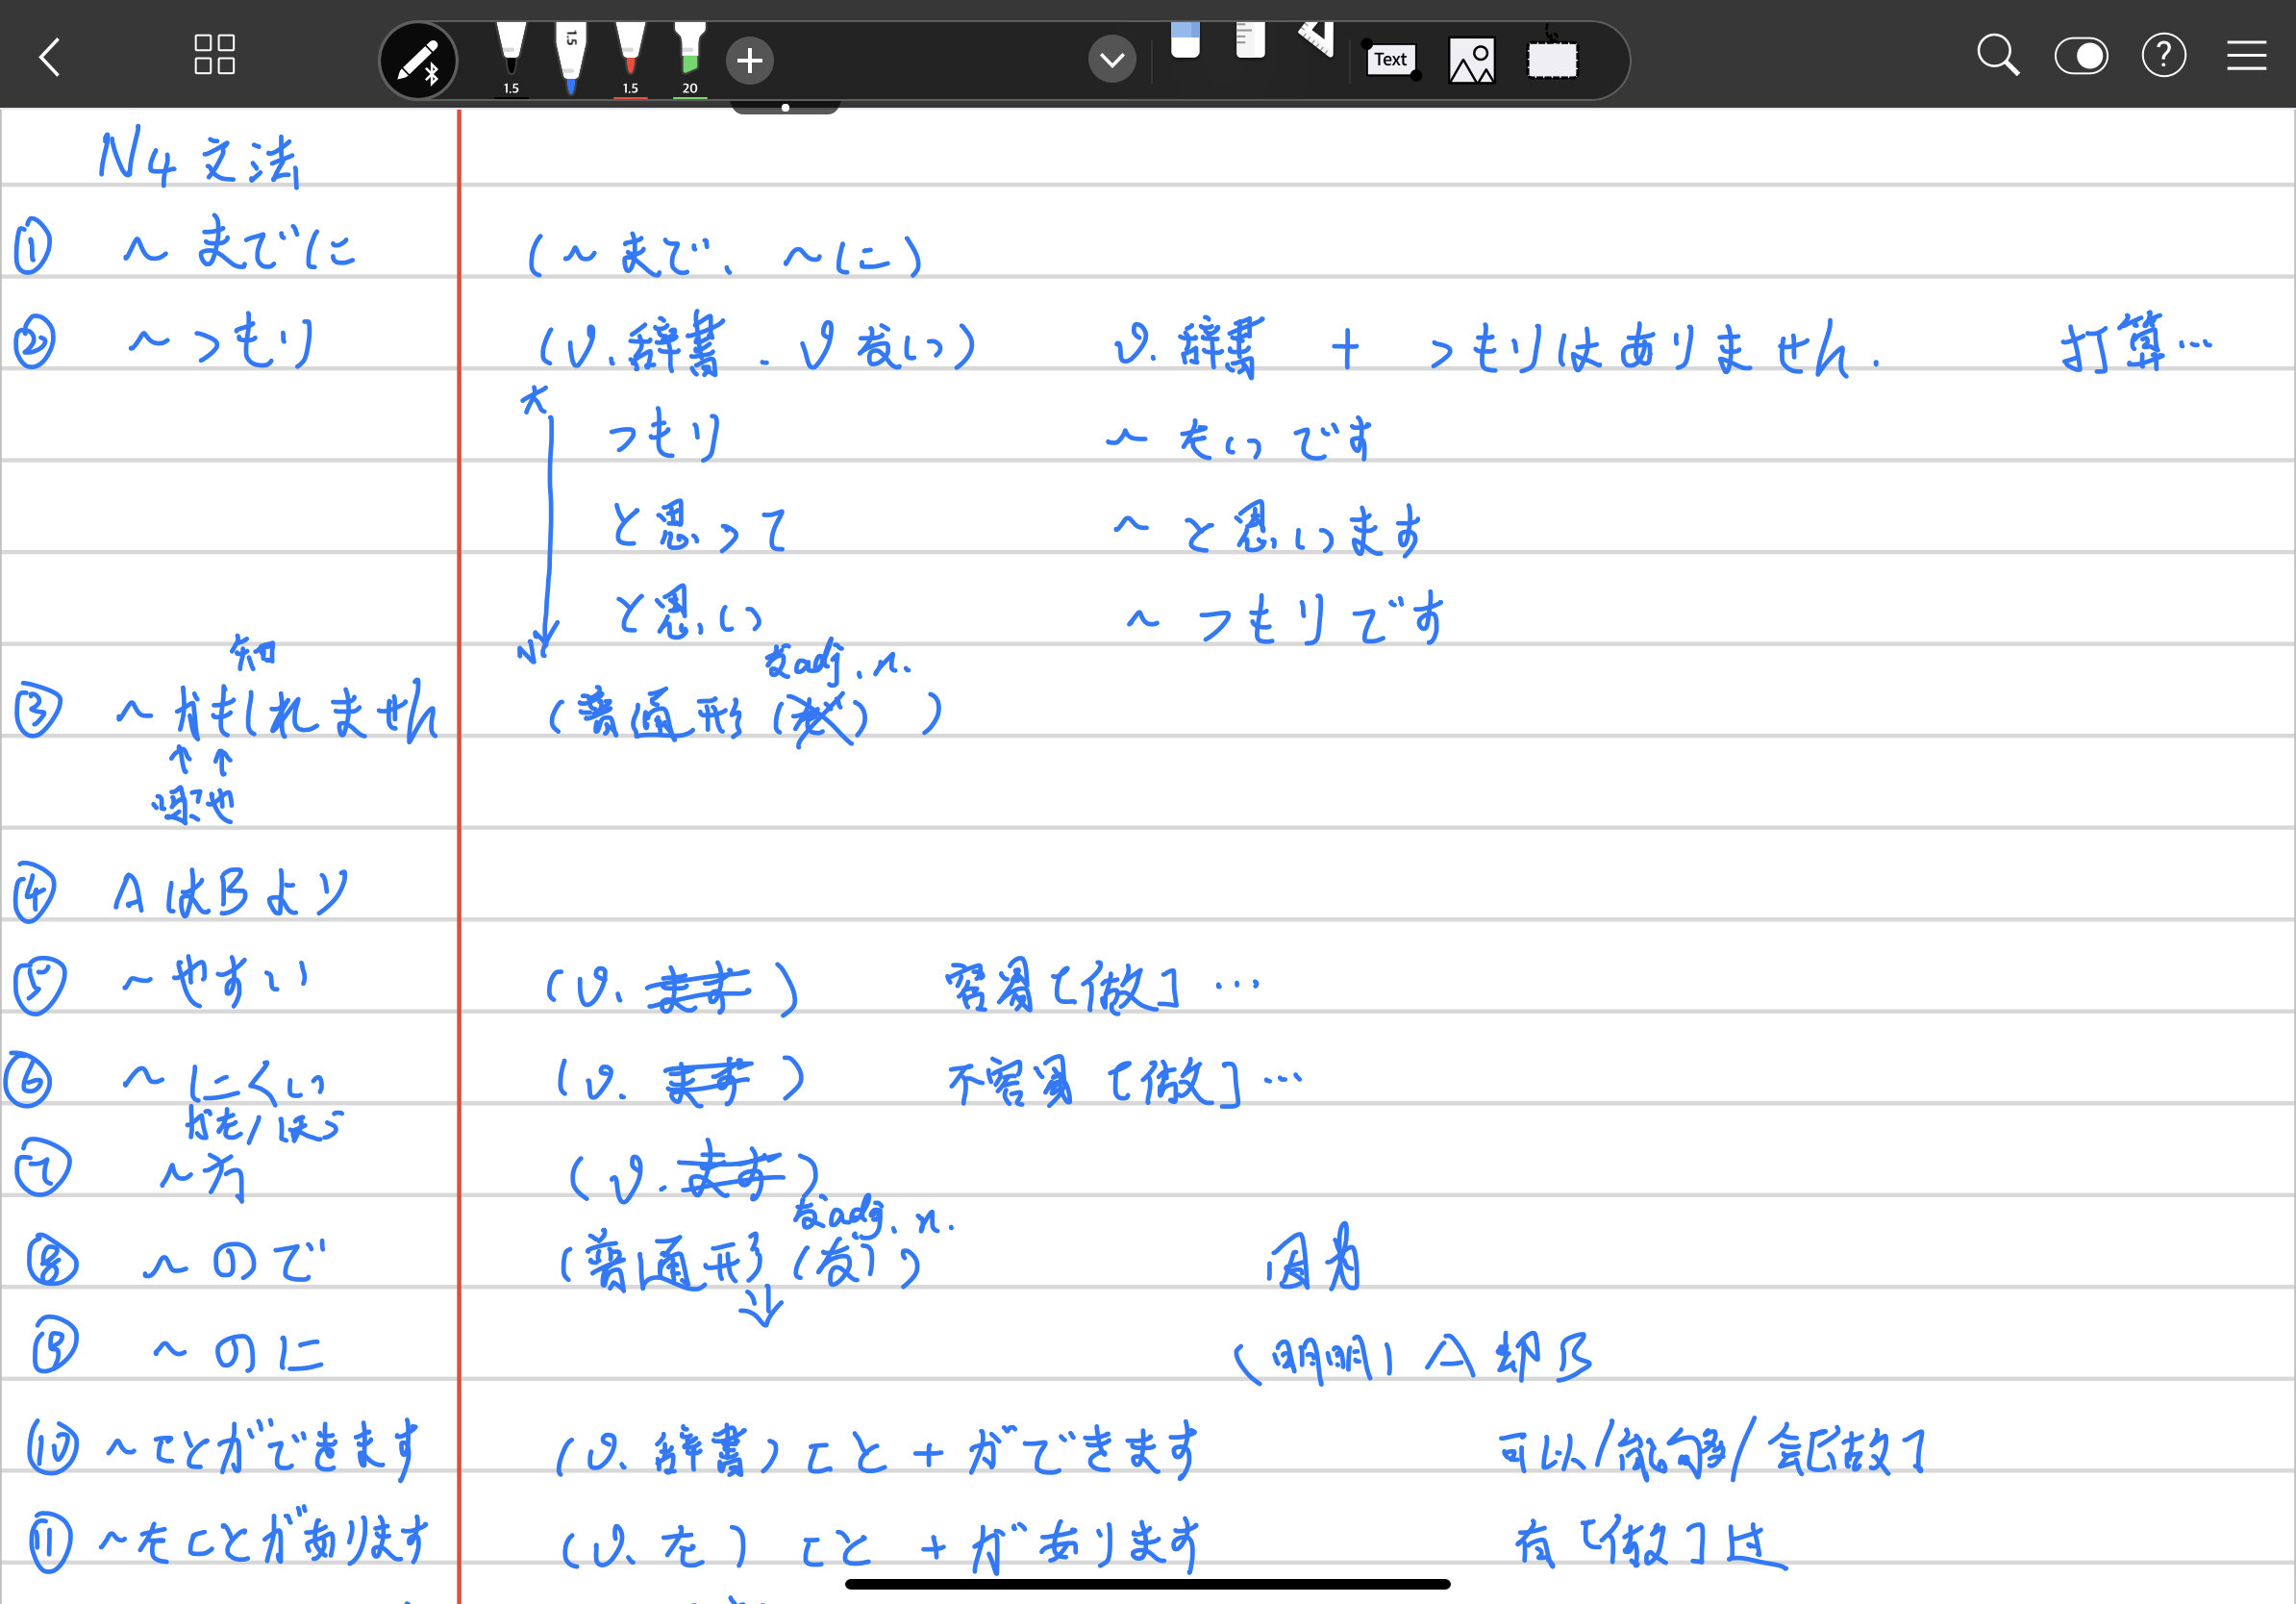 1.5 1.5 1.5 20 Text
N4 文法
① ～までに (～まで、～に)
② ～つもり (V.辞書. Vない) V.辞書 + つもりはありません. 打算…
つもり ～たいです
と思って ～と思います
と思い ～つもりです
な adj. n.
③ ～かもしれません (普通形 )
↑ ↑
④ AはBより
⑤ ～やすい (V. ます) 容易[做]…
⑥ ～にくい (V. ます) 不容易[做]…
⑦ ～方 (V. ます)
な adj. n.
⑧ ～ので (普通形 (な)) 因為
↓
⑨ ～のに (明明) A 卻 B
⑩ ～ことができます (V. 辞書) こと + ができます 可以/
⑪ ～たことがあります (V. た) こと + があります 有[做]过